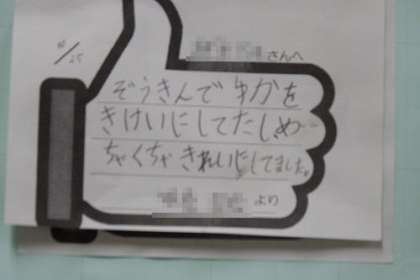 4/25
さんへ
ぞうきんでゆかを
きけいにしてたしめ
ちゃくちゃきれいにしてました。
より